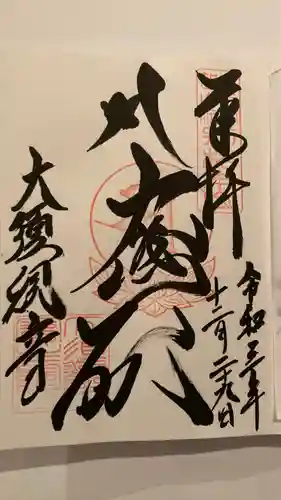 奉拝
令和三年
十二月二十九日
大悲殿
大須観音